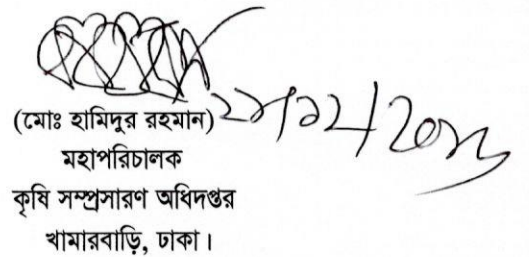 (মোঃ হামিদুর রহমান)
মহাপরিচালক
কৃষি সম্প্রসারণ অধিদপ্তর
খামারবাড়ি, ঢাকা।